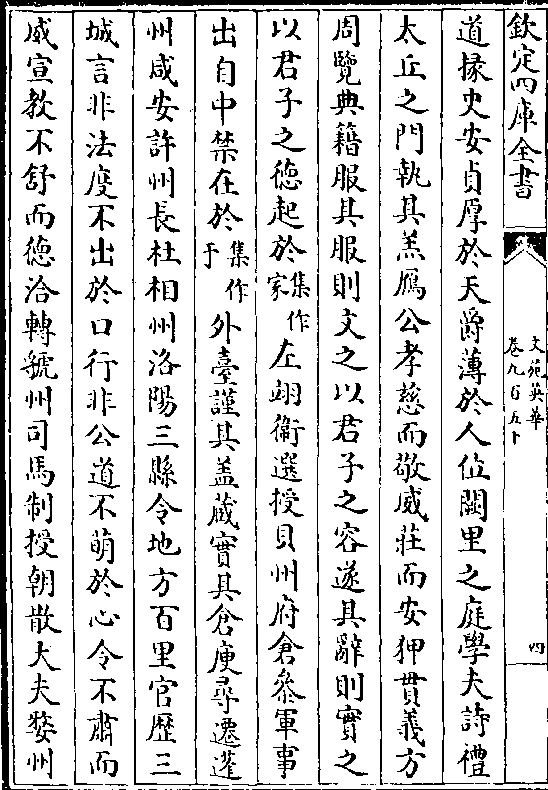 欽定四庫全書
文苑英華
卷九百五十
四
道掾史安貞厚於天爵薄於人位闕里之庭學夫詩禮
太丘之門執其羔鴈公孝慈而敬威莊而安狎貫義方
周覽典籍服其服則文之以君子之容遂其辭則實之
以君子之徳起於集作家左翊衞選授貝州府倉叅軍事
出自中禁在於集作于外臺謹其盖蔵實其倉庾尋遷蓬
州咸安許州長杜相州洛陽三縣令地方百里官歴三
城言非法度不出於口行非公道不萌於心令不肅而
威宣教不舒而徳洽轉虢州司馬制授朝散大夫婺州